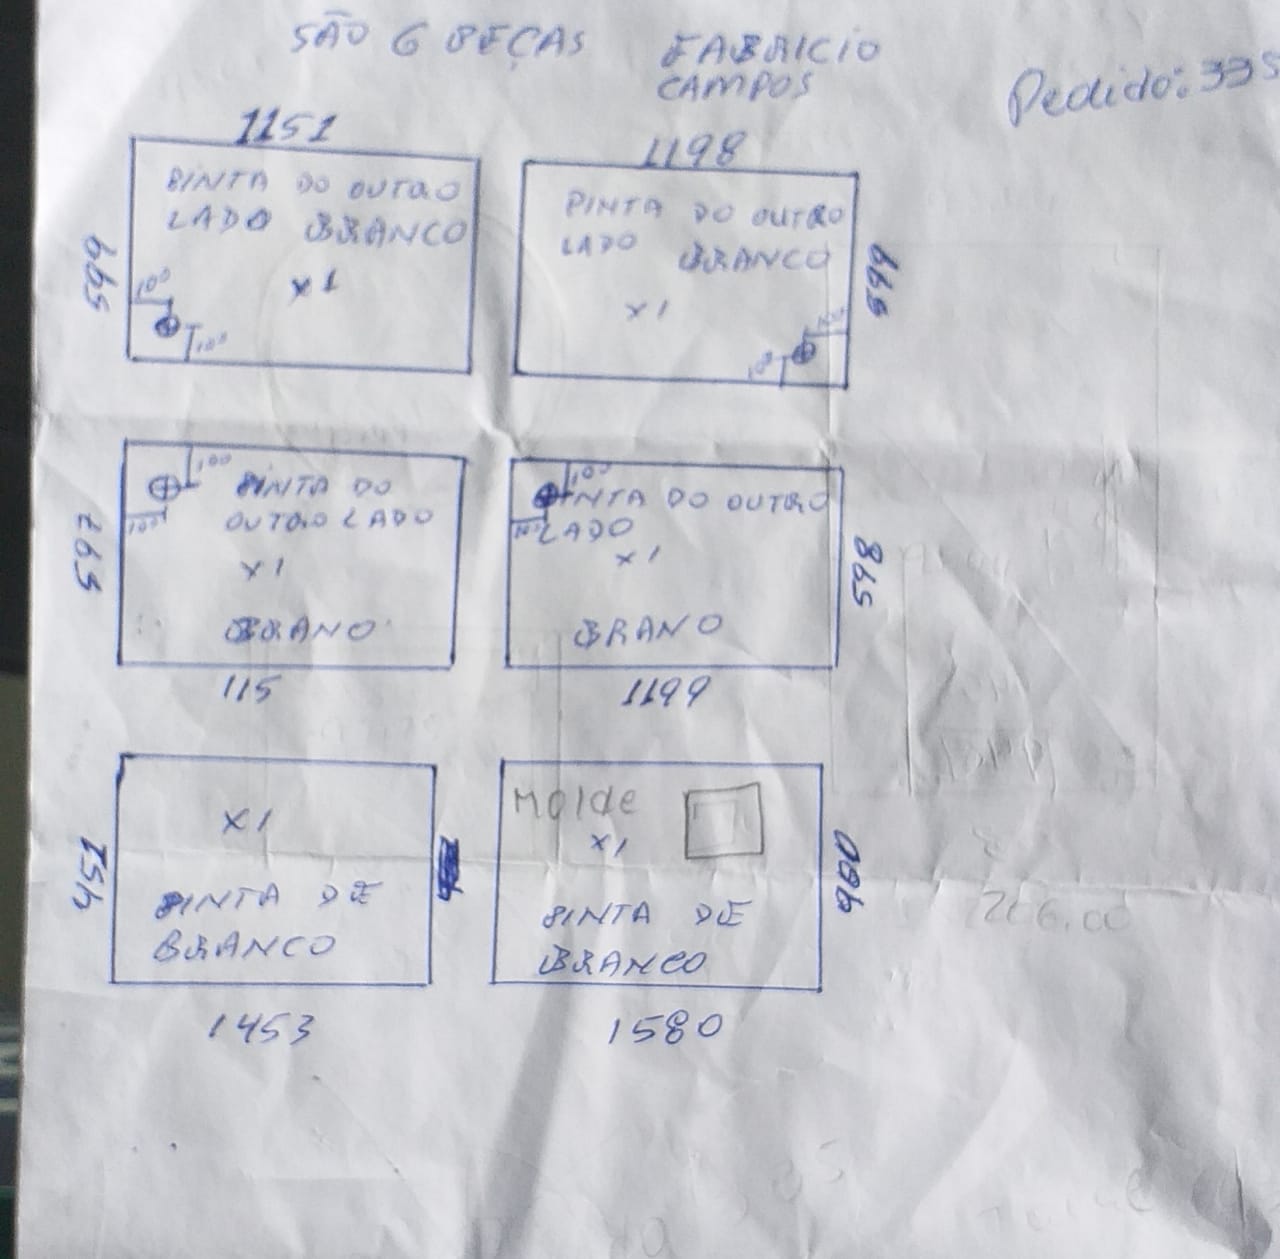 SÃO 6 PEÇAS
FABRICIO
CAMPOS
Pedido: 335
1151
PINTA DO OUTRO
LADO BRANCO
x1
100
100
599
1198
PINTA DO OUTRO
LADO BRANCO
x1
100
599
100
PINTA DO
OUTRO LADO
x1
BRANO
100
597
115
100
PINTA DO OUTRO
LADO
x1
BRANO
598
1199
x1
PINTA DE
BRANCO
1453
Molde
x1
PINTA DE
BRANCO
900
1580
266,00